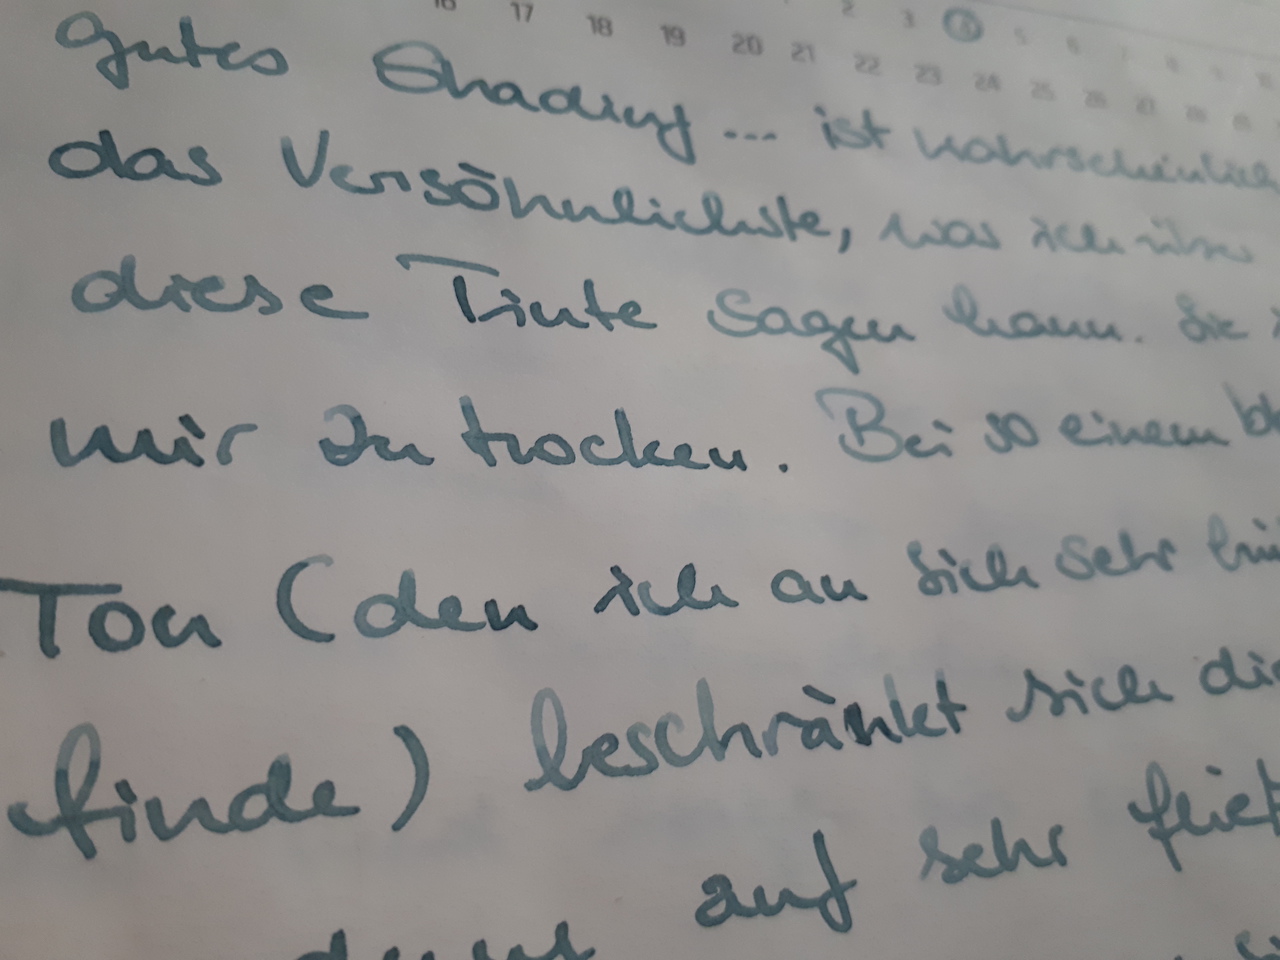 2 3 4 5 6 7 8 9 10
16 17 18 19 20 21 22 23 24 25 26 27 28 29
gutes Shading ... ist wahrscheinlich
das Versöhnlichste, was ich über
diese Tinte sagen kann. Sie
mir zu trocken. Bei so einem
Ton (den ich an sich sehr
finde) beschränkt sich
auf sehr